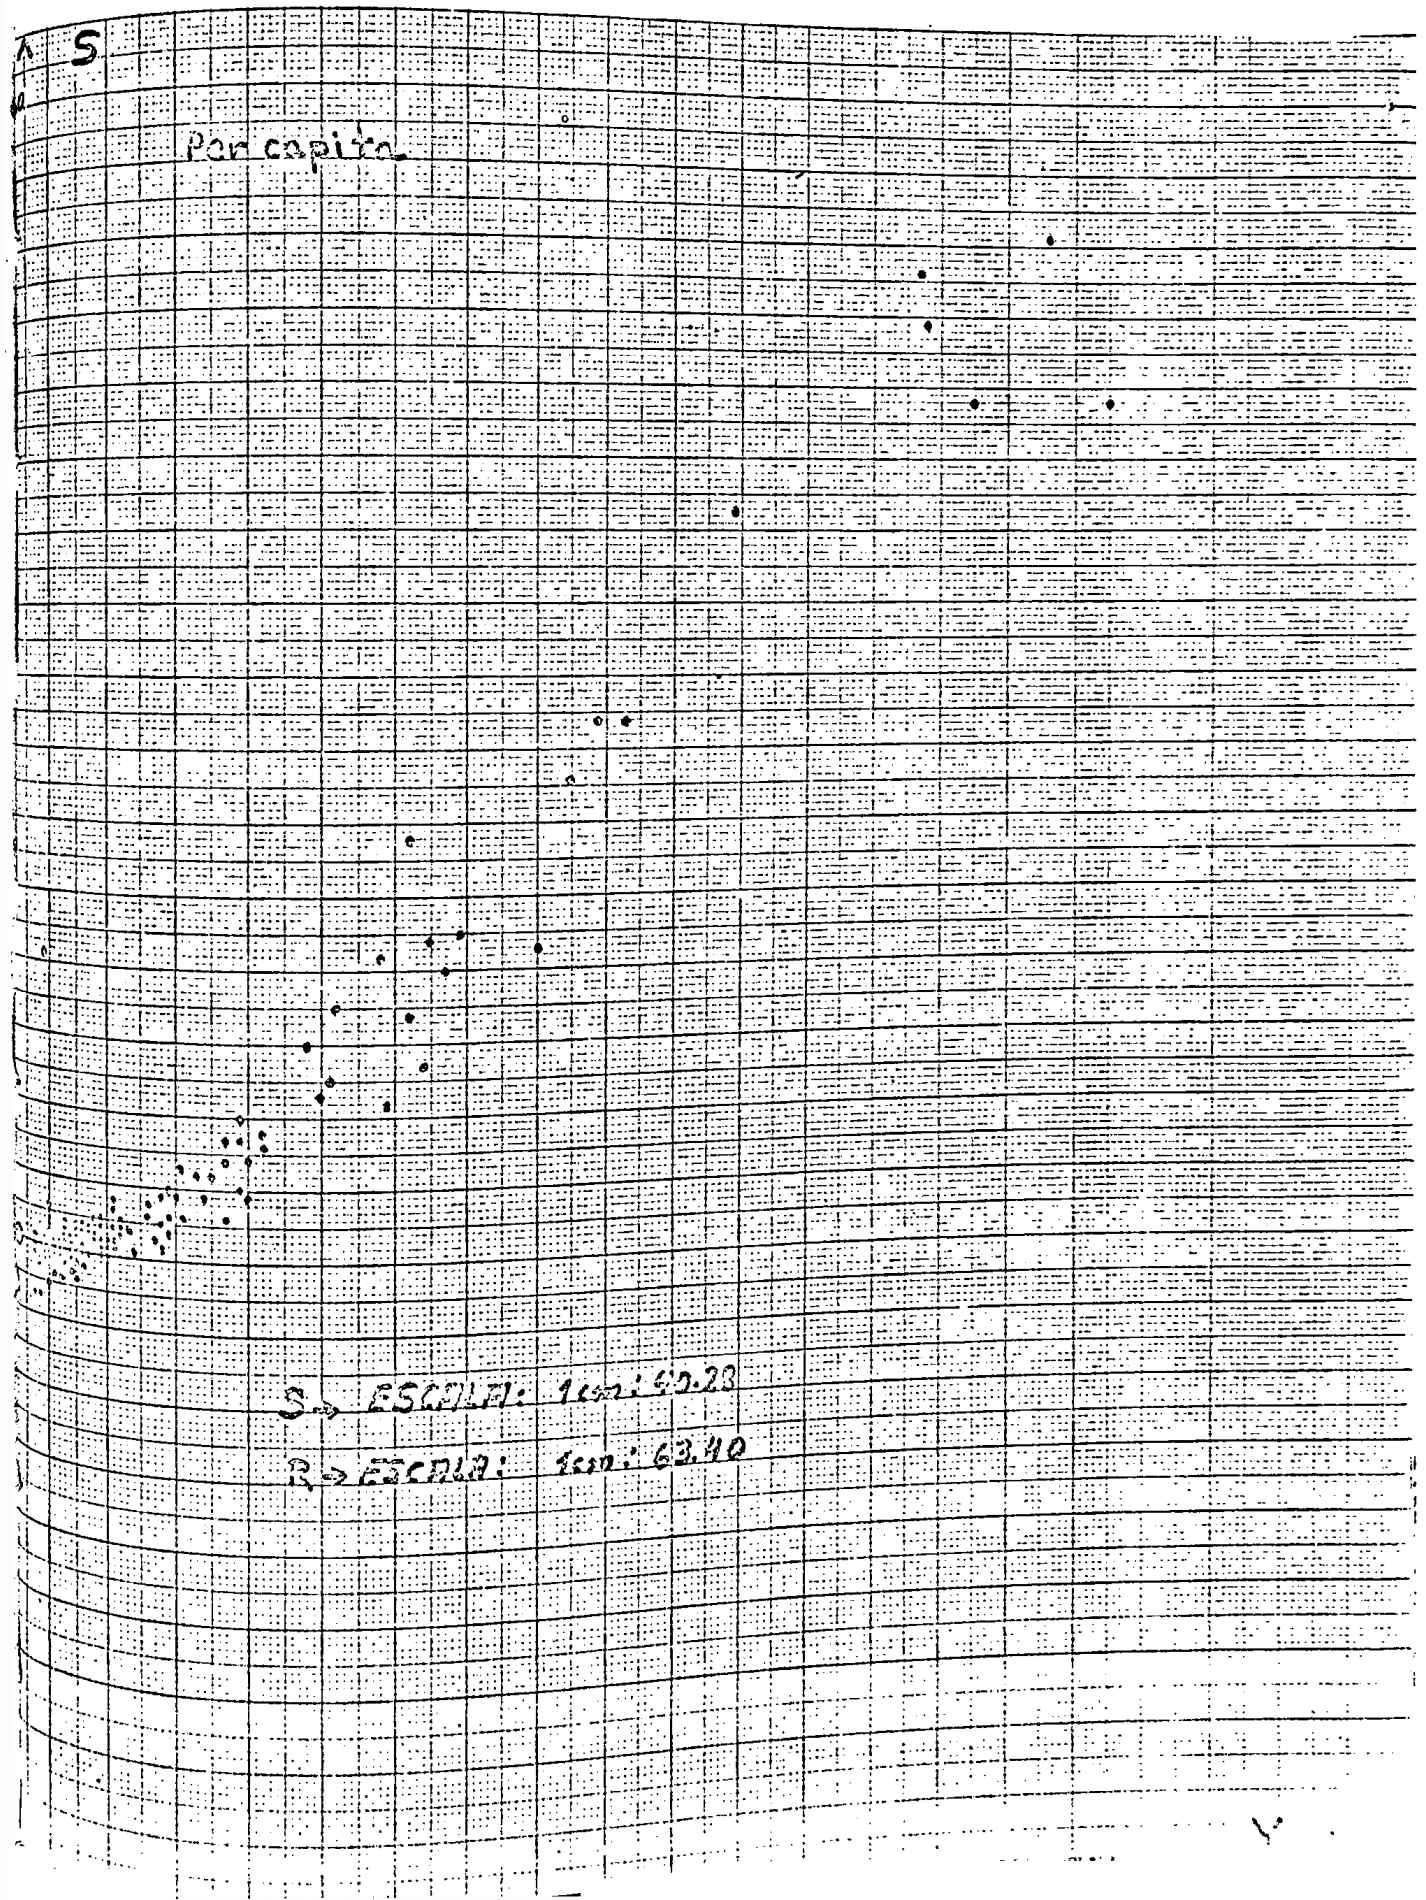 S
Per capita
S → ESCALA: 1cm: 40.23
R → ESCALA: 1cm: 63.40
Y